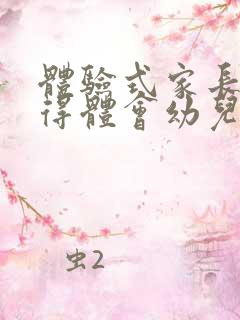 體驗式家長
得體會幼兒
虫2